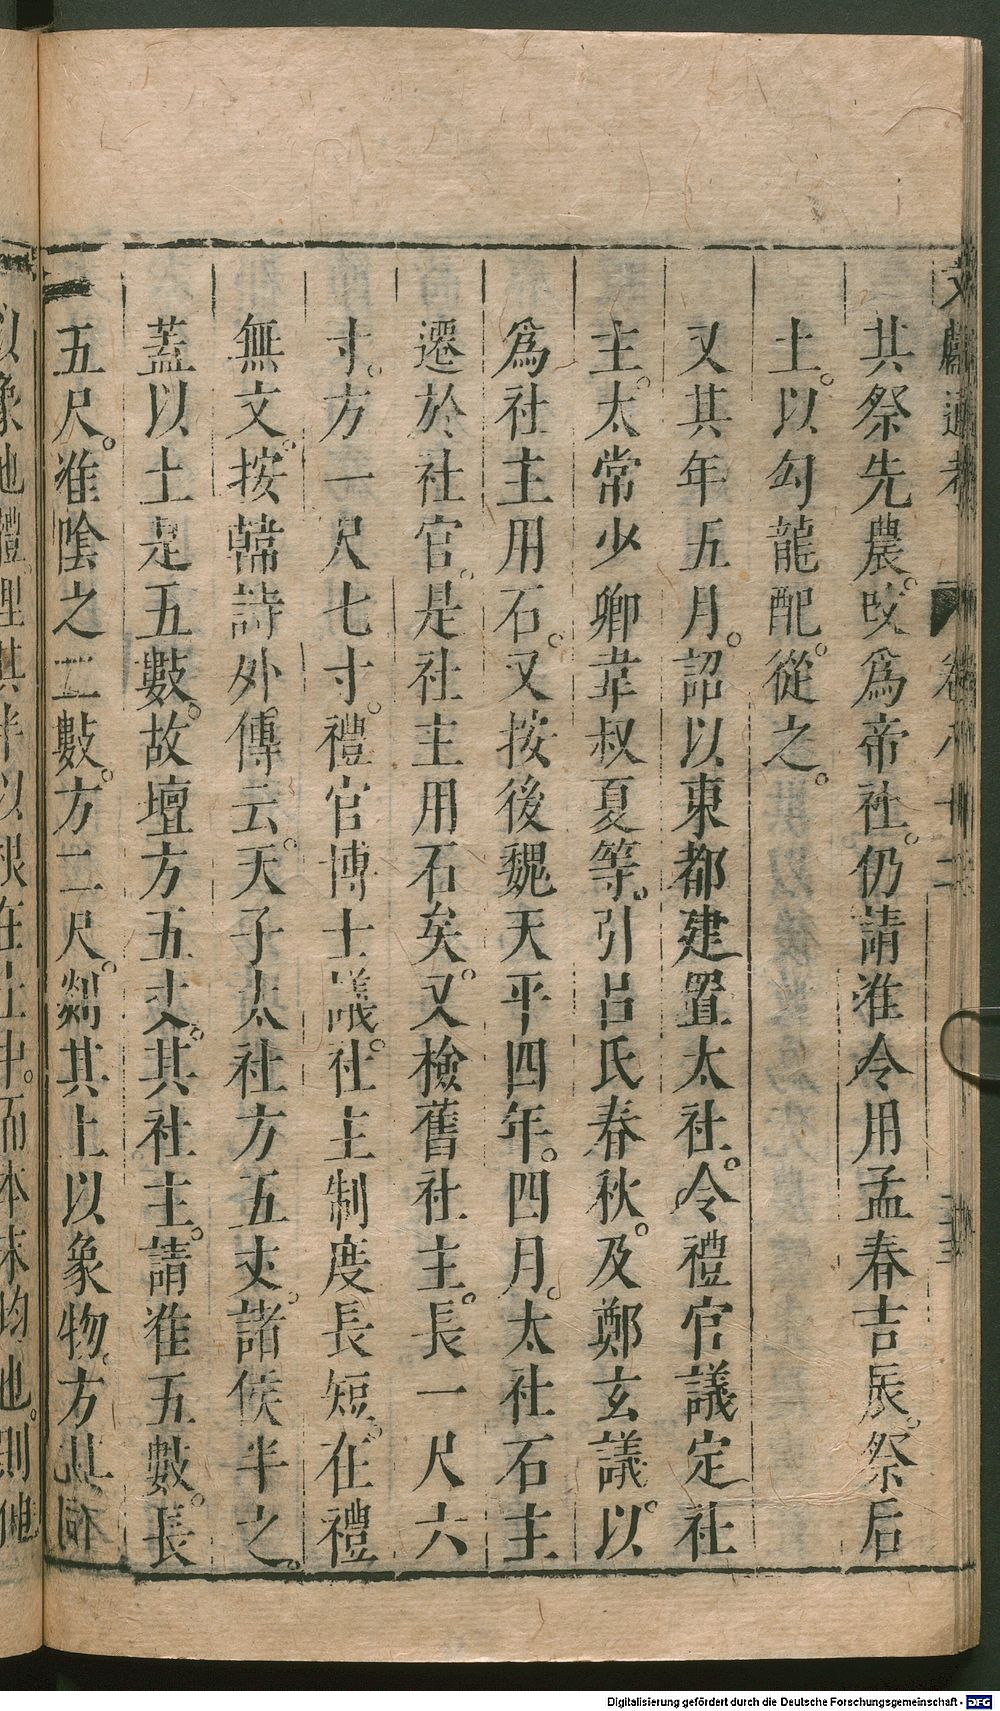 文獻通考 卷八十二
共祭先農。改爲帝社。仍請准令用孟春吉辰。祭后
土。以勾龍配。從之。
又其年五月。詔以東都建置太社。令禮官議定社
主。太常少卿韋叔夏等。引呂氏春秋。及鄭玄議。以
爲社主用石。又按後魏天平四年。四月。太社石主
遷於社官。是社主用石矣。又檢舊社主。長一尺六
寸。方一尺七寸。禮官博士議。社主制度長短。在禮
無文。按韓詩外傳云。天子太社方五丈。諸侯半之。
蓋以土是五數。故壇方五丈。其社主。請准五數。長
五尺。准陰之二數。方二尺。剡其上以象物。方其
以象地體埋其半以根在土中。而本末均也。則
Digitalisierung gefördert durch die Deutsche Forschungsgemeinschaft - DFG